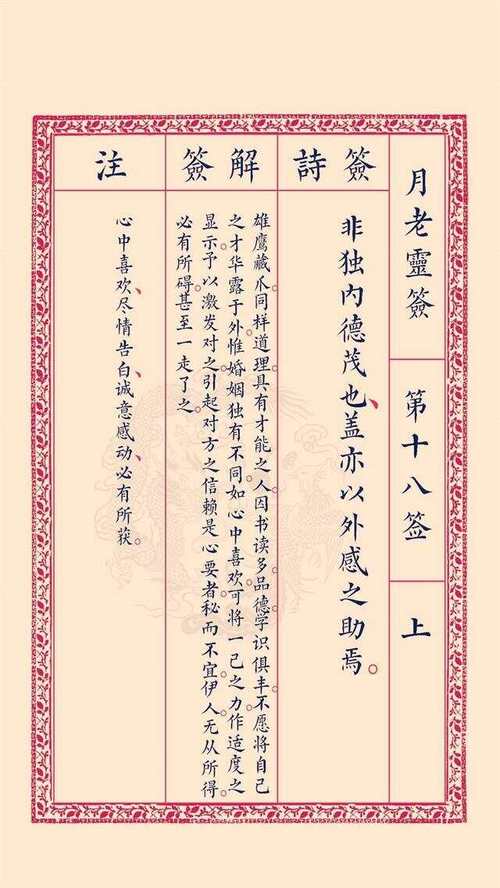 月老靈簽
第十八签
上
簽詩
非独内德茂也、盖亦以外感之助焉。
解簽
雄鹰藏爪。同样道理。具有才能之人。因书读多。品德学识俱丰。不愿将自己
之才华露于外。惟婚姻独有不同。如心中喜欢。可将一己之力。作适度之
显示。予以激发对之。引起对方之信赖。是心要者。秘而不宜。伊人无从所得。
必有所碍。甚至一走了之。
注
心中喜欢、尽情告白、诚意感动、必有所获。